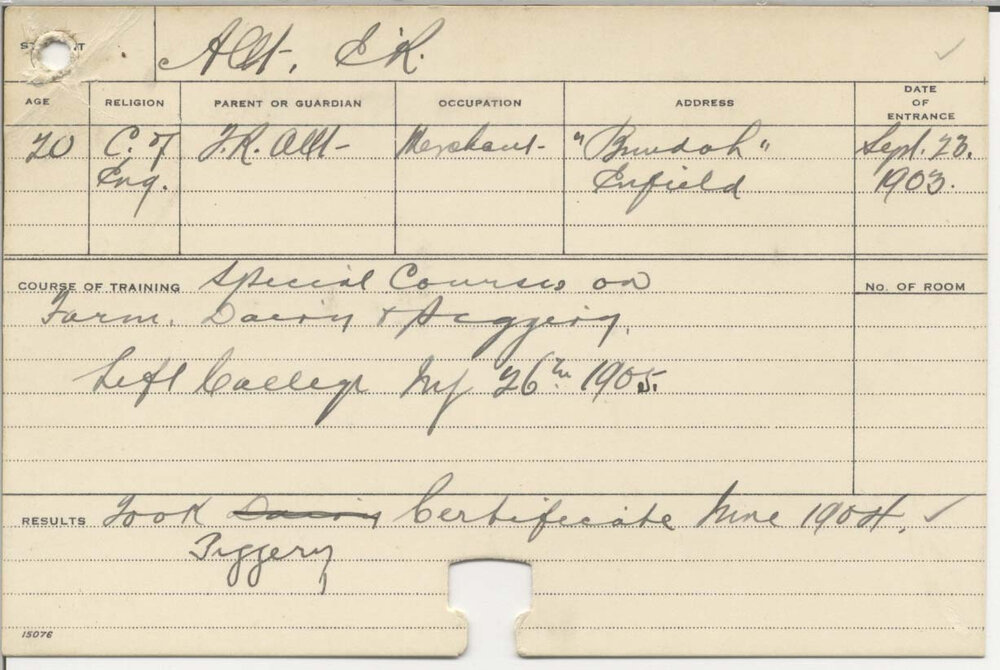 STUDENT Allt, E.R.
AGE RELIGION PARENT OR GUARDIAN OCCUPATION ADDRESS DATE OF ENTRANCE
20 C. of J.R. Allt Merchant "Bundah" Sept. 23.
Eng. Enfield 1903.
COURSE OF TRAINING Special Courses on No. OF ROOM
Farm. Dairy & Piggery.
Left College 26th 1905.
RESULTS Took Dairy Certificate June 1904.
Piggery
15076